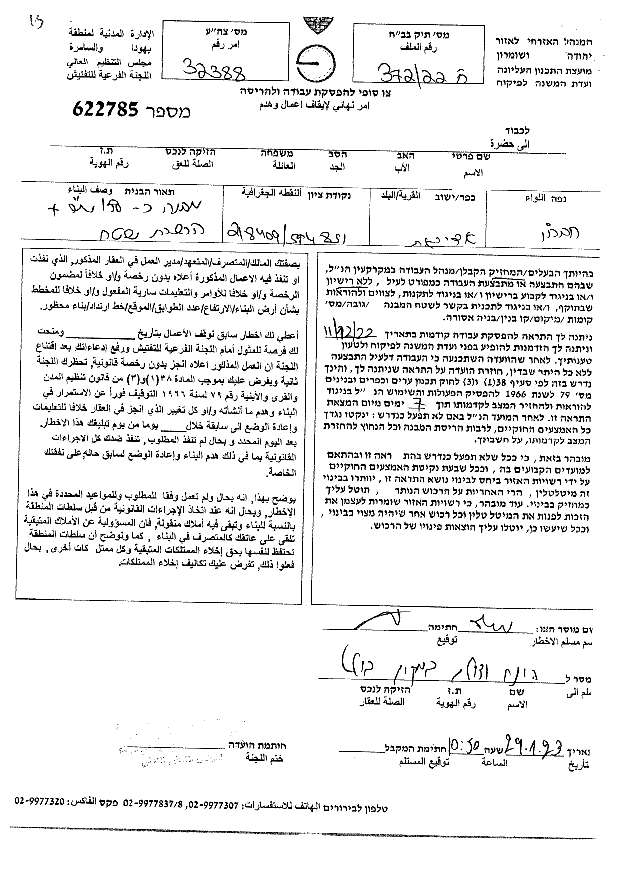 המנהל האזרחי לאזור
יהודה ושומרון
מועצת התכנון העליונה
ועדת המשנה לפיקוח
מס׳ תיק בב״ח
رقم الملف
ח 372/22
מס׳ צה״ע
امر رقم
32388
الإدارة المدنية لمنطقة
يهودا والسامرة
مجلس التنظيم العالي
اللجنة الفرعية للتفتيش
צו סופי להפסקת עבודה ולהריסה
امر نهائي لإيقاف اعمال وهدم
מספר 622785
לכבוד
الى حضرة
שם פרטי האב הסב משפחה הזיקה לנכס ת.ז
الاسم الأب الجد العائلة الصلة للعق رقم الهوية
נפה اللواء
כפר/ישוב القرية/البلد
נקודת ציון النقطة الجغرافية
תאור הבנית وصف البناء
חברון
בהיותך הבעלים/המחזיק הקבלן/מנהל העבודה במקרקעין הנ״ל,
שבהם התבצעה או מתבצעת העבודה כמפורט לעיל, ללא רישיון
ו/או בניגוד לקבוע ברישיון ו/או בניגוד לתקנות, לצווים ולהוראות
שבתוקף, ו/או בניגוד לתכנית בקשר לשטח המבנה /גובה/מס׳
קומות /מיקום/קו בנין/בניה אסורה.
ניתנה לך התראה להפסקת עבודה קודמות בתאריך 11/12/22
וניתנה לך הזדמנות להופיע בפני ועדת המשנה לפיקוח ולטעון
טענותיך. לאחר שהוועדה השתכנעה כי העבודה דלעיל התבצעה
ללא כל היתר שבדין, חוזרת הועדה על התראה שניתנה לך, והינך
נדרש בזה לפי סעיף 38(1) ו(3) לחוק תכנון ערים וכפרים ובנינים
מס׳ 79 לשנת 1966 להפסיק הפעולות והשימוש הנ״ל בניגוד
להוראות ולהחזיר המצב לקדמותו תוך 7 ימים מיום המצאת
התראה זו. לאחר המועד הנ״ל באם לא תפעל כנדרש: ינקטו נגדך
כל האמצעים החוקיים, לרבות הריסת המבנה וכל הנחוץ להחזרת
המצב לקדמותו, על חשבונך.
מובהר בזאת, כי ככל שלא תפעל כנדרש בהתראה זו ובהתאם
למועדים הקבועים בה, וככל שבעת נקיטת האמצעים החוקיים
על ידי רשויות האזור ביחס לבינוי נושא התראה זו, יוותרו בבינוי
זה מיטלטלין, הרי האחריות על הרכוש הנותר, תוטל עליך
כמחזיק בבינוי. עוד מובהר, כי רשויות האזור שומרות לעצמן את
הזכות לפנות את המיטלטלין וכל רכוש אחר שיהיה מצוי בבינוי,
וככל שיעשו כן, יוטלו עליך הוצאות פינויו של הרכוש.
بصفتك المالك/المتصرف/المتعهد/مدير العمل في العقار المذكور, الذي نفذت
او تنفذ فيه الاعمال المذكورة أعلاه بدون رخصة و/او خلافاً لمضمون
الرخصة و/او خلافاً للأوامر والتعليمات سارية المفعول و/او خلافاً للمخطط
بشأن أرض البناء/الارتفاع/عدد الطوابق/الموقع/خط ارتداد/بناء محظور.
أعطي لك اخطار سابق توقف الأعمال بتاريخ ____ ومنحت
لك فرصة للمثول أمام اللجنة الفرعية للتفتيش ورفع إدعاءاتك بعد إقتناع
اللجنة ان العمل المذكور اعلاه انجز بدون رخصة قانونية, تحظرك اللجنة
ثانية ويفرض عليك بموجب المادة ٣٨(١)و(٣) من قانون تنظيم المدن
والقرى والأبنية رقم ٧٩ لسنة ١٩٦٦ التوقيف فوراً عن الاستمرار في
البناء وهدم ما أنشأته و/أو كل تغيير الذي انجز في العقار خلافا للتعليمات
وإعادة الوضع الى سابقة خلال ____ يوما من يوم تبليغك هذا الاخطار.
بعد اليوم المحدد و بحال لم تنفذ المطلوب, تتخذ ضدك كل الاجراءات
القانونية بما في ذلك هدم البناء وإعادة الوضع لسابق حاله, على نفقتك
الخاصة.
يوضح بهذا, انه بحال ولم تعمل وفقا للمطلوب وللمواعيد المحددة في هذا
الاخطار, وبحال انه عند اتخاذ الإجراءات القانونية من قبل سلطات المنطقة
بالنسبة للبناء وتبقى فيه أملاك منقولة, فان المسؤولية عن الأملاك المتبقية
تلقى على عاتقك كالمتصرف في البناء, كما ونوضح أن سلطات المنطقة
تحتفظ لنفسها بحق إخلاء الممتلكات المتبقية وكل ممتل كات أخرى, بحال
فعلوا ذلك, تفرض عليك تكاليف إخلاء الممتلكات.
שם מוסר הצו: חתימה
سم مسلم الاخطار توقيع
נמסר ל
שם ת.ז הזיקה לנכס
الاسم رقم الهوية الصلة للعقار
תאריך 29.1.23 שעה 10:50 חתימת המקבל
تاريخ الساعة توقيع المستلم
חותמת הועדה
ختم اللجنة
טלפון לבירורים الهاتف للاستفسارات: 02-9977307, 02-9977837/8 פקס الفاكس: 02-9977320